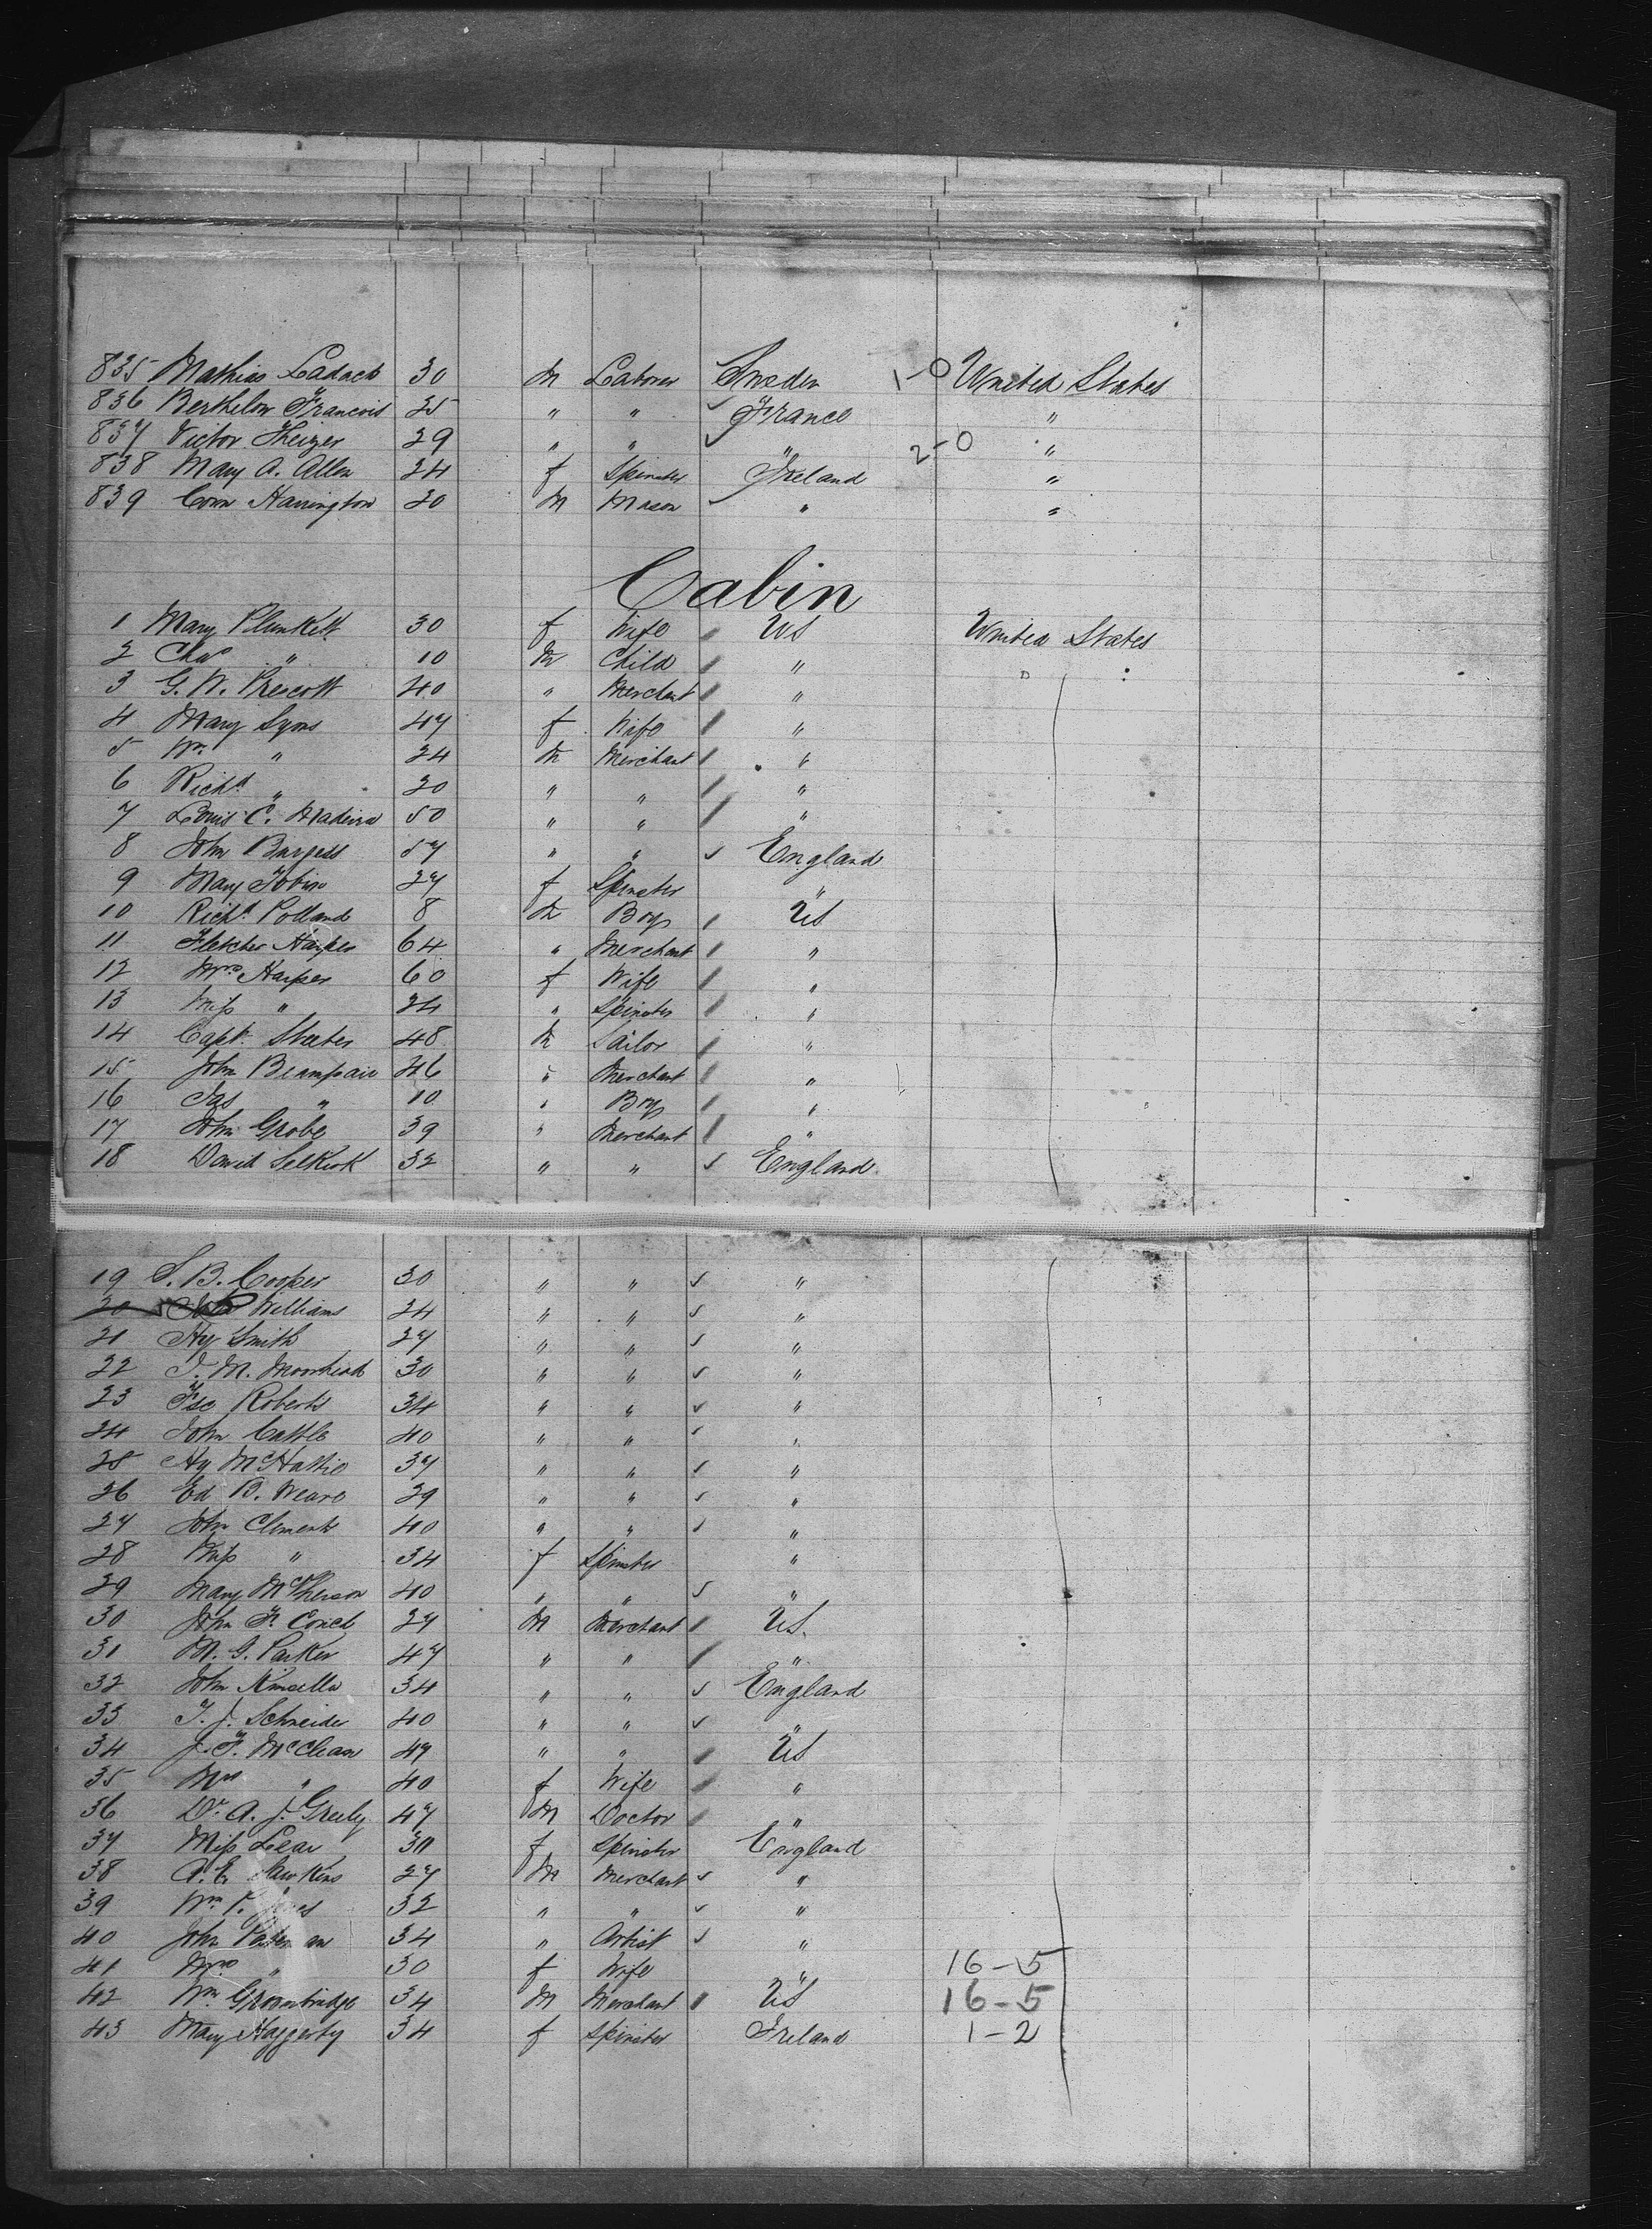 835 Mathias Ladack 30 m Laborer Sweden 1-0 United States
836 Berthelow Francois 25 " " France "
837 Victor Theizer 29 " " " "
838 Mary A. Allen 24 f Spinster Ireland 2-0 "
839 Corn Harrington 20 m Mason " "
Cabin
1 Mary Plunkett 30 f Wife US United States
2 Chas " 10 m Child " "
3 G. W. Prescott 40 " Merchant "
4 Mary Lyons 47 f Wife "
5 Wm " 24 m Merchant "
6 Richd " 20 " " "
7 Louis C. Madeira 50 " " "
8 John Burgess 57 " " England
9 Mary Tobin 27 f Spinster "
10 Richd Polland 8 m Boy US
11 Fletcher Harper 64 " Merchant "
12 Mrs Harper 60 f Wife "
13 Miss " 24 " Spinster "
14 Capt. 48 m Sailor "
15 John 46 " Merchant "
16 Jas " 10 " Boy "
17 John Grobe 39 " Merchant "
18 David Selkirk 32 " " England
19 S. B. Cooper 30 " " "
20 John Williams 24 " " "
21 Hy Smith 27 " " "
22 T. M. Moorhead 30 " " "
23 Roberts 34 " " "
24 John Cattle 40 " " "
25 Hy McHattie 37 " " "
26 Ed B. Weare 29 " " "
27 John Clements 40 " " "
28 Miss " 34 f Spinster "
29 Mary McPherson 40 " " "
30 John F. 27 m Merchant US.
31 M. G. Parker 47 " " "
32 John Kinsella 34 " " England
33 T. J. Schneider 40 " " "
34 J. F. McClean 47 " " US
35 Mrs " 40 f Wife "
36 Dr. A. J. Greely 47 m Doctor "
37 Miss Lear 30 f Spinster England
38 A. E. Hawkins 27 m Merchant "
39 Wm P. Jones 32 " " "
40 John 34 " Artist "
41 Mrs " 30 f Wife " 16-5
42 Wm Groombridge 34 m Merchant US 16-5
43 Mary Haggerty 34 f Spinster Ireland 1-2